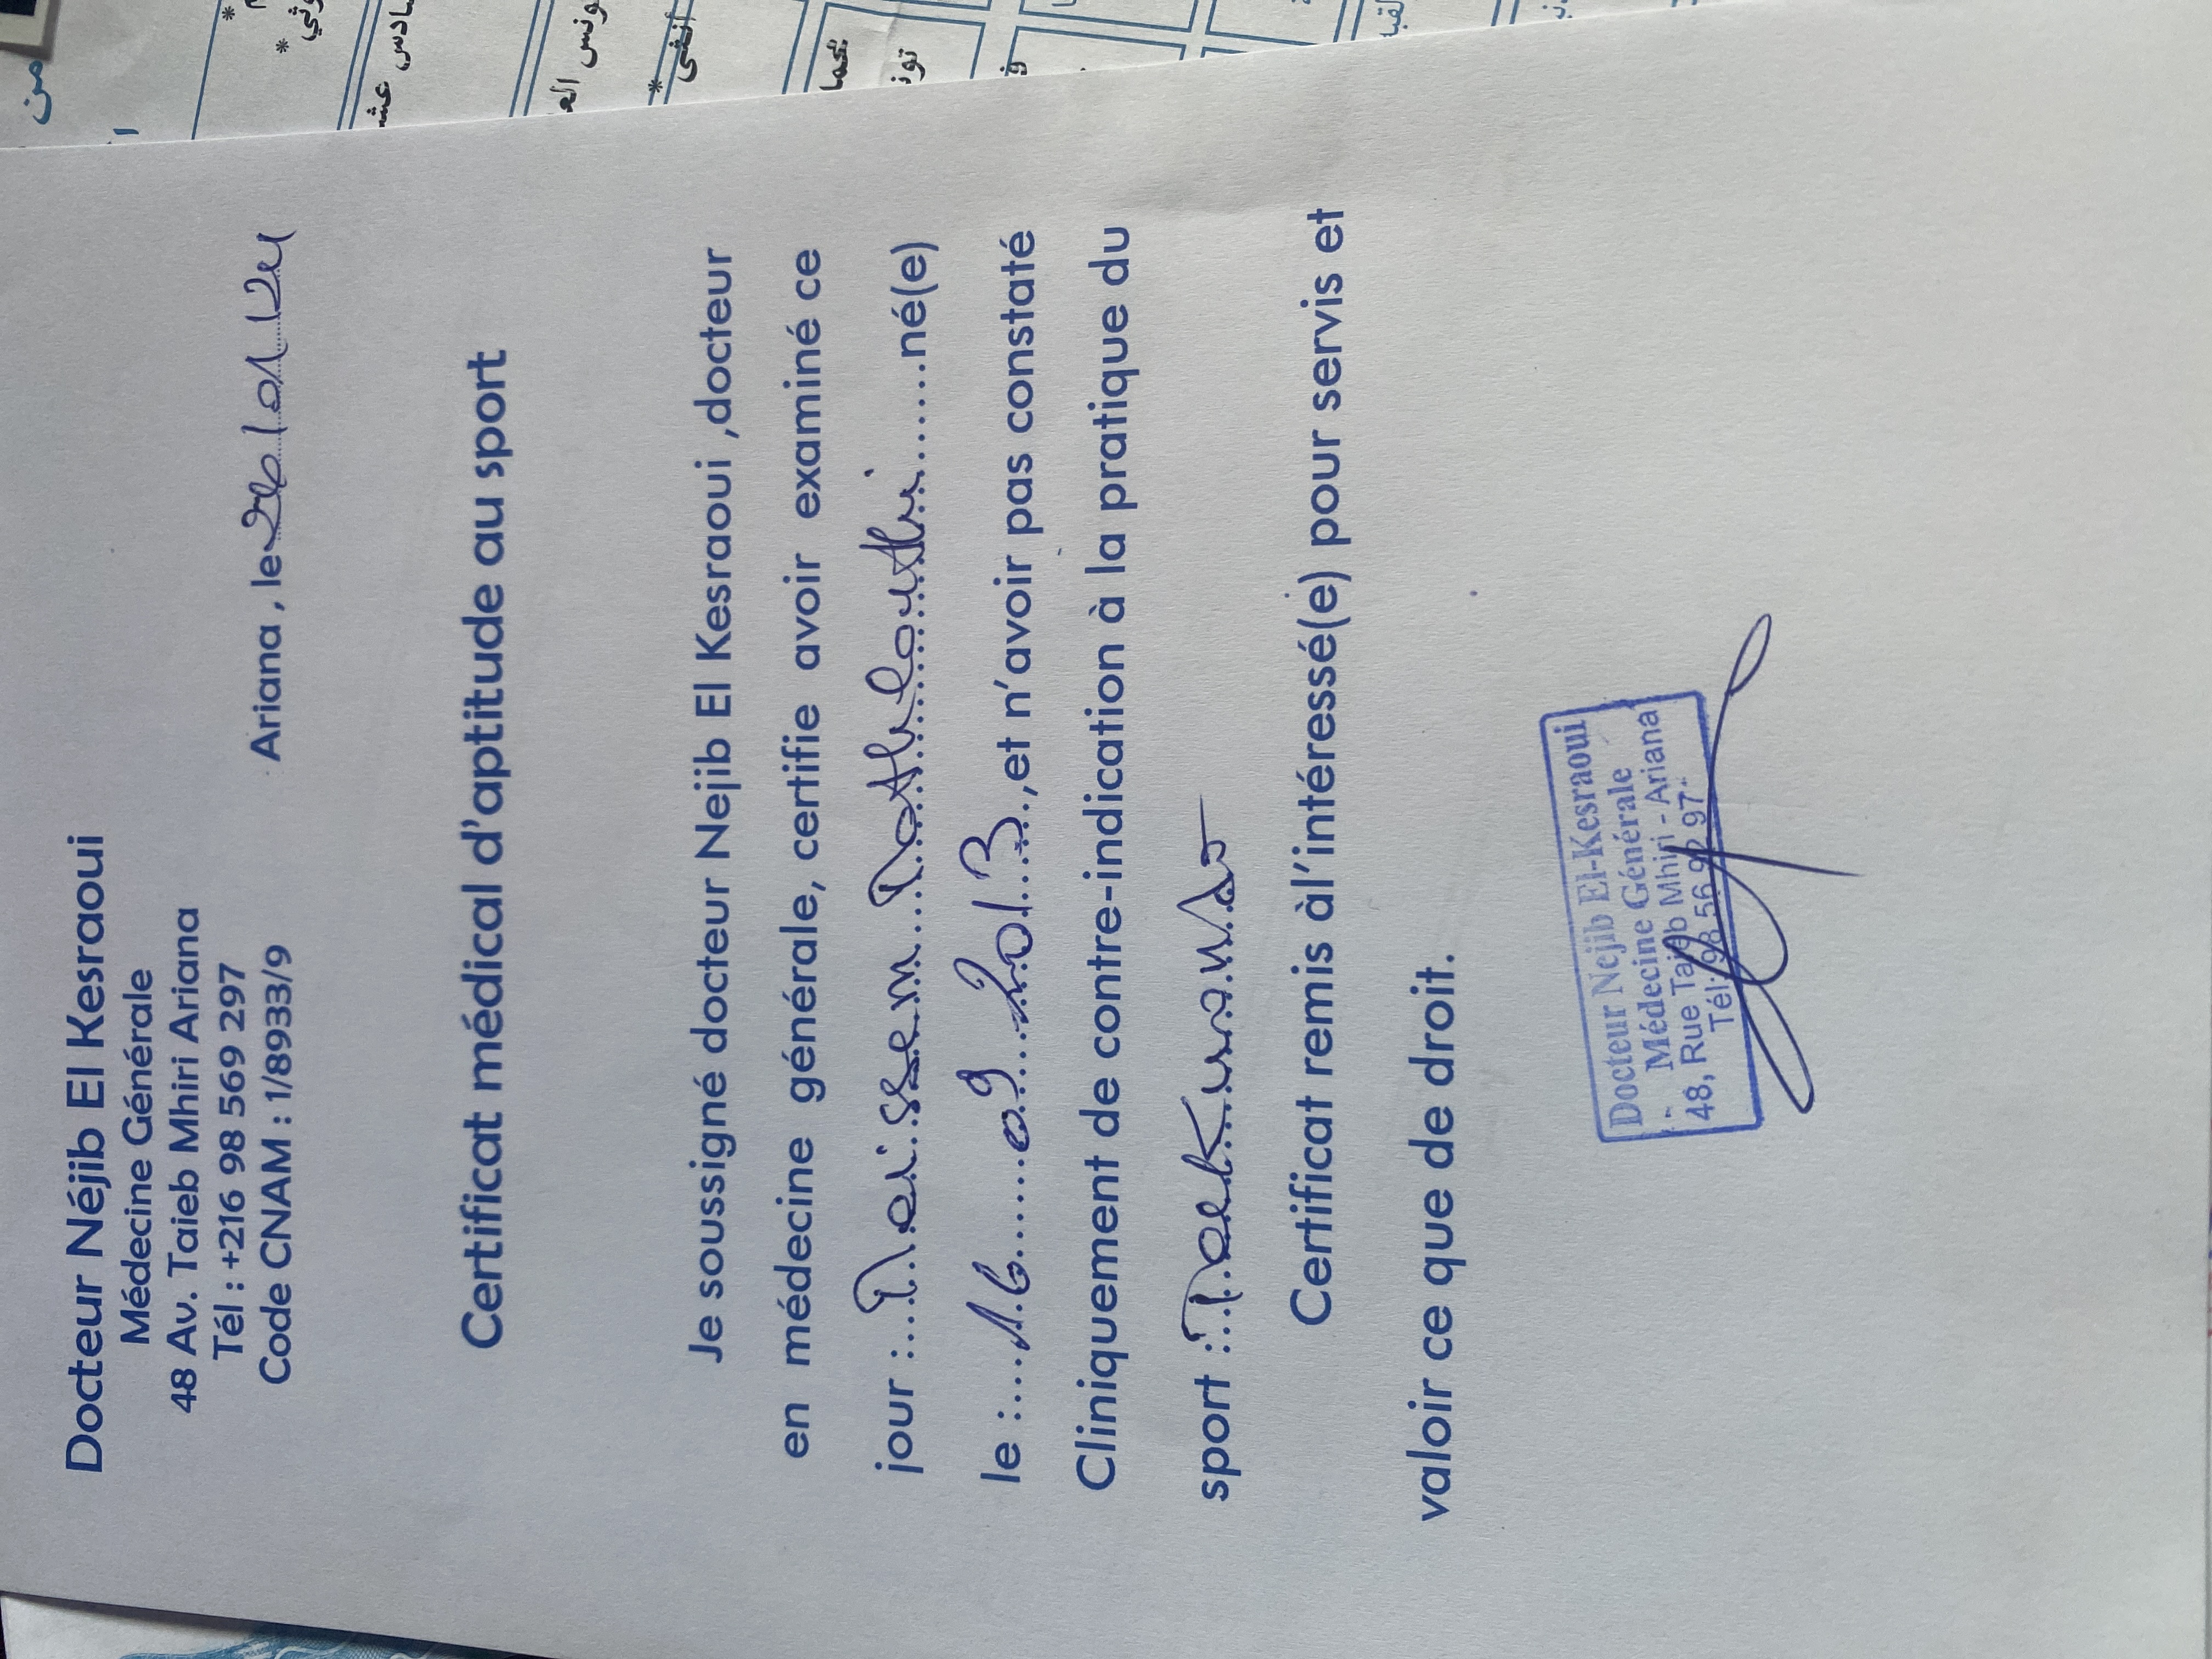 Docteur Néjib El Kesraoui
Médecine Générale
48 Av. Taieb Mhiri Ariana
Tél : +216 98 569 297
Code CNAM : 1/8933/9
Ariana , le
Certificat médical d'aptitude au sport
Je soussigné docteur Nejib El Kesraoui ,docteur
en médecine générale, certifie avoir examiné ce
jour :.... .......né(e)
le :....16......09....2013..,et n'avoir pas constaté
Cliniquement de contre-indication à la pratique du
sport :
Certificat remis àl'intéressé(e) pour servis et
valoir ce que de droit.
Docteur Nejib El-Kesraoui
Médecine Générale
48, Rue Taieb Mhiri - Ariana
Tél: 98 56 92 97
من
سادس عشر
أنثى